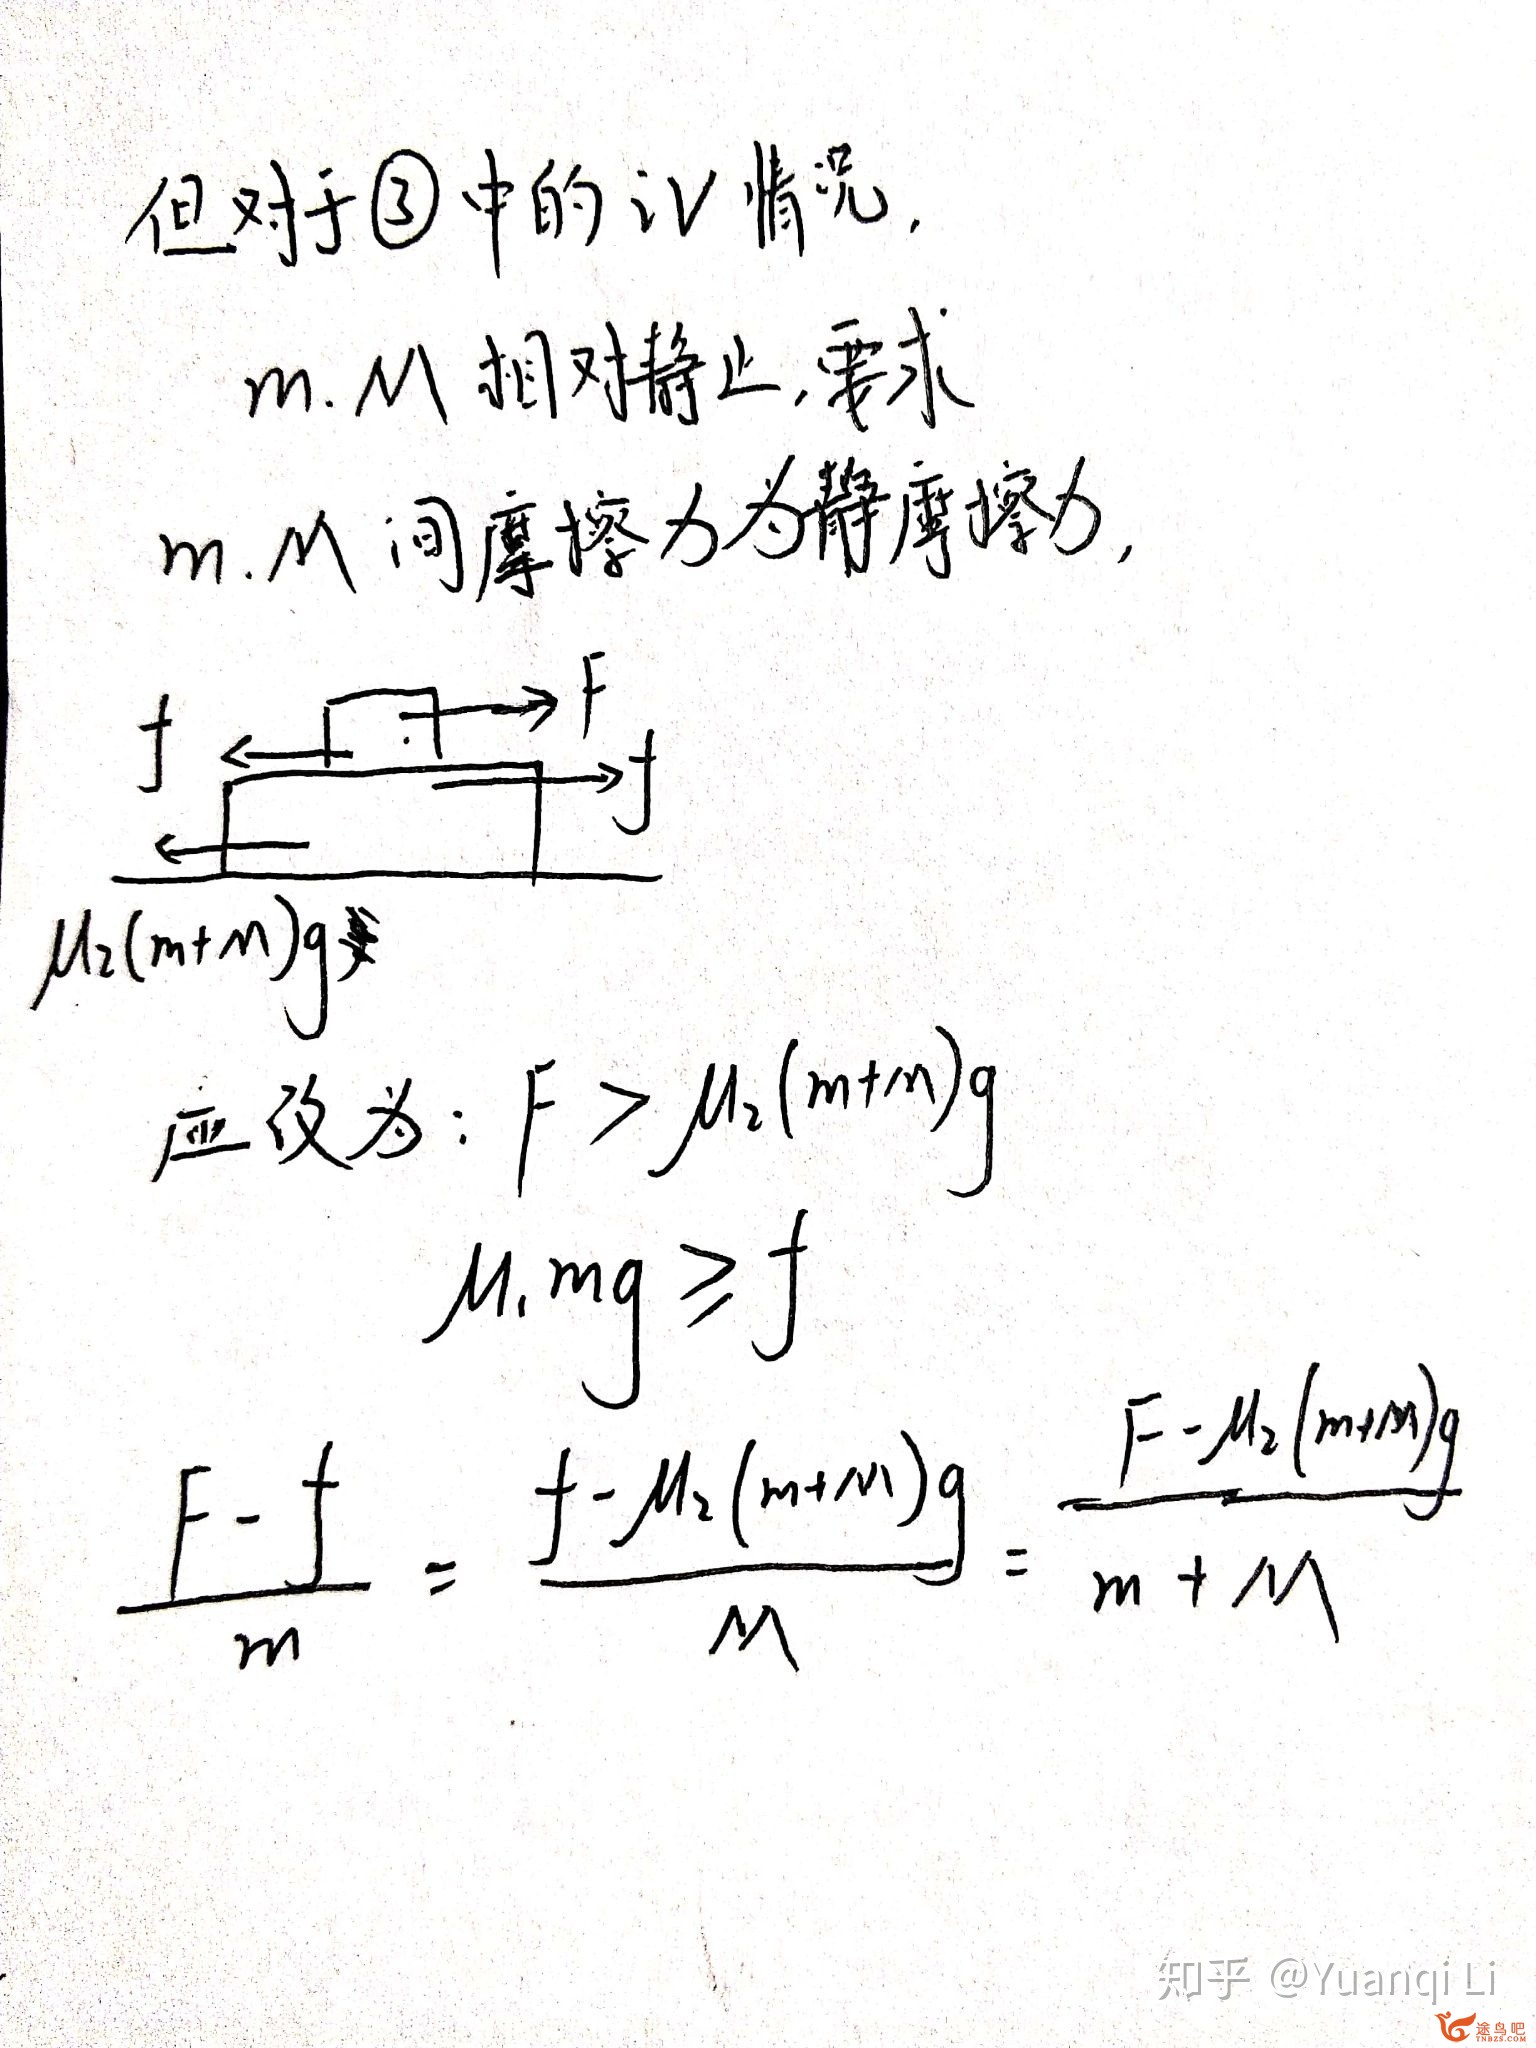 但对于③中的iV情况,
m.M相对静止,要求
m.M间摩擦力为静摩擦力,
F
f
f
μ₂(m+M)g
应改为: F > μ₂(m+M)g
μ₁mg ≥ f
(F-f)/m = (f-μ₂(m+M)g)/M = (F-μ₂(m+M)g)/(m+M)
知乎 @Yuanqi Li
途鸟吧
TNBZS.COM